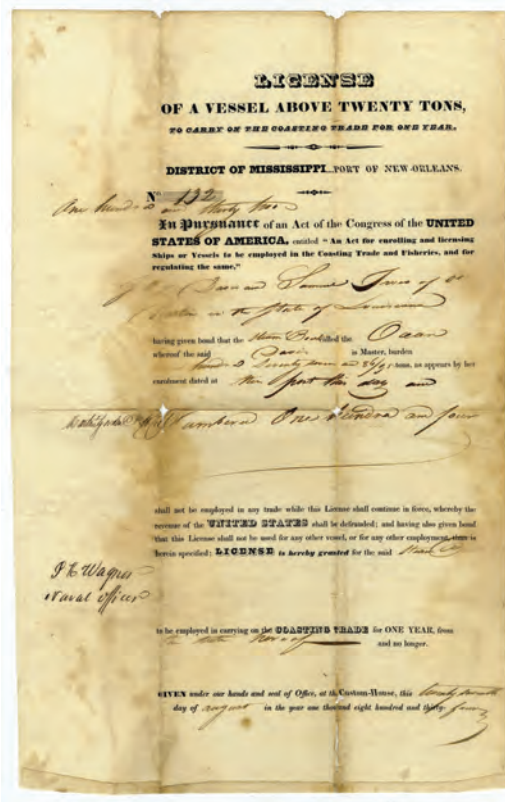 LICENSE
OF A VESSEL ABOVE TWENTY TONS,
TO CARRY ON THE COASTING TRADE FOR ONE YEAR.
DISTRICT OF MISSISSIPPI...PORT OF NEW-ORLEANS.
No. 132
One hundred and thirty two
In Pursuance of an Act of the Congress of the UNITED
STATES OF AMERICA, entitled "An Act for enrolling and licensing
Ships or Vessels to be employed in the Coasting Trade and Fisheries, and for
regulating the same,"
and Samuel of
in the State of Louisiana
having given bond that the Steam Boat called the
whereof the said is Master, burden
hundred tons, as appears by her
enrolment dated at this port this day and
Numbered One hundred an four
shall not be employed in any trade while this License shall continue in force, whereby the
revenue of the UNITED STATES shall be defrauded; and having also given bond
that this License shall not be used for any other vessel, or for any other employment, than is
herein specified: LICENSE is hereby granted for the said Steam
P K Wagner
Naval officer
to be employed in carrying on the COASTING TRADE for ONE YEAR, from
the date hereof and no longer.
GIVEN under our hands and seal of Office, at the Custom-House, this twenty seventh
day of august in the year one thousand eight hundred and thirty- four